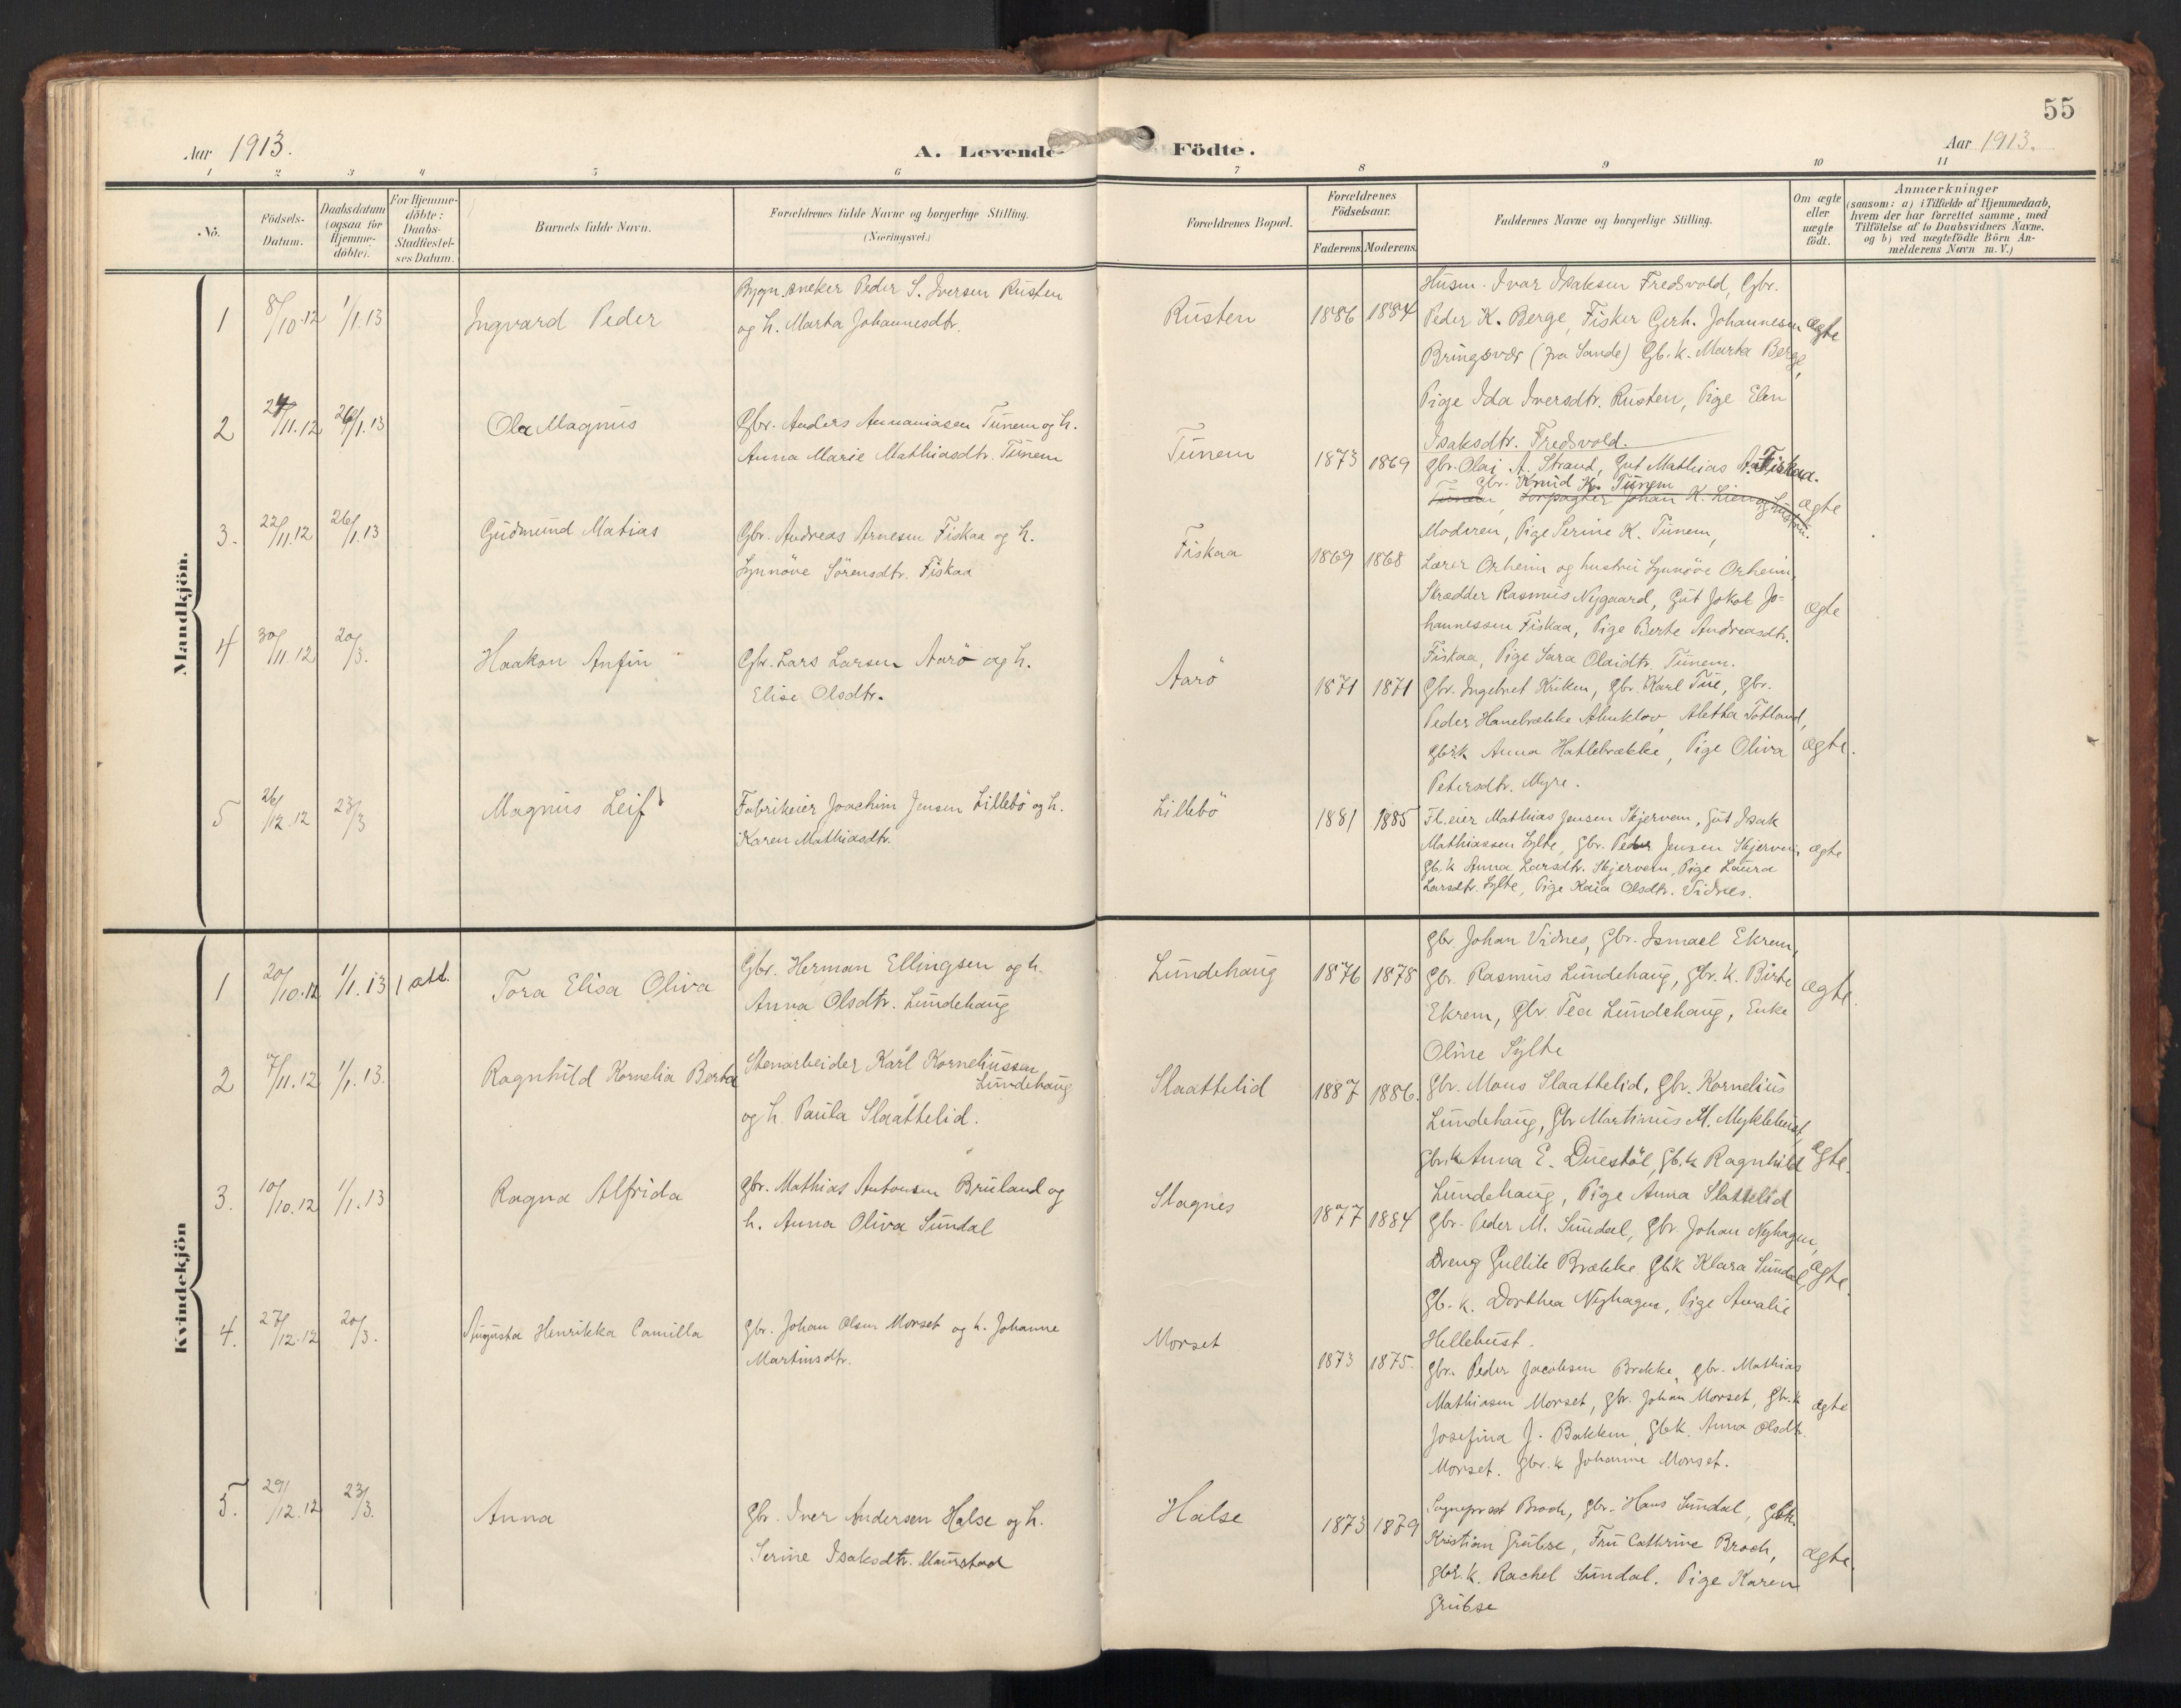 55
Aar 1913.
A. Levende Födte.
Aar 1913.
1 2 3 4 5 6 7 8 9 10 11
No.
Födsels-Datum.
Daabsdatum (ogsaa för Hjemme-döbte).
For Hjemme-döbte: Daabs-Stadfæstel-ses Datum.
Barnets fulde Navn.
Forældrenes fulde Navne og borgerlige Stilling.
(Næringsvei.)
Forældrenes Bopæl.
Forældrenes Födselsaar.
Faderens. Moderens.
Faddernes Navne og borgerlige Stilling.
Om ægte eller uægte födt.
Anmærkninger
(saasom: a) i Tilfælde af Hjemmedaab, hvem der har forrettet samme, med Tilföielse af to Daabsvidners Navne, og b) ved uægtefödte Börn An-melderens Navn m. V.)
Mandkjön.
1 8/10.12 1/1.13 Ingvard Peder
Bygn.sneker Peder S. Iversen Rusten
og h. Marta Johannesdtr.
Rusten 1886 1884
Husm. Ivar Isaksen Fredsvold, Gbr.
Peder K. Berge, Fisker Gerh. Johannesen
Bringsvær (fra Sande) Gb.k. Marta Berge,
Pige Ida Iversdtr. Rusten, Pige Elen
Isaksdtr. Fredsvold.
ægte
2 24/11.12 26/1.13 Ola Magnus
Gbr. Anders Annaniasen Tunem og h.
Anna Marie Mathiasdtr. Tunem
Tunem 1873 1869
Gbr. Olai A. Strand, Gut Mathias A. Fiskaa.
Gbr. Knud K. Tunem
Tunem, Forpagter Johan K. Lien og hustru.
Moderen, Pige Serine K. Tunem,
ægte
3. 22/11.12 26/1.13 Gudmund Matias
Gbr. Andreas Arnesen Fiskaa og h.
Synnöve Sörensdtr. Fiskaa
Fiskaa 1869 1868
Lærer Orheim og hustru Synnöve Orheim,
Skrædder Rasmus Nygaard, Gut Jakob Jo-
hannessen Fiskaa, Pige Berte Andreasdtr.
Fiskaa, Pige Sara Olaidtr. Tunem.
ægte
4 30/11.12 20/3. Haakon Anfin
Gbr. Lars Larsen Aarö og h.
Elise Olsdtr.
Aarö 1871 1871
Gbr. Ingebret Kriken, Gbr. Karl Tue, Gbr.
Peder Hanebrække, Aletha Totland,
Gbr.k Anna Hatlebrække, Pige Oliva
Petersdtr. Myre.
ægte.
5 26/12.12 23/3 Magnus Leif
Fabrikeier Joachim Jensen Lillebö og h.
Karen Mathiasdtr.
Lillebö 1881 1885
Fb.eier Mathias Jensen Skjervem, Gut Isak
Mathiassen Sylte, Gbr. Peder Jensen Skjervem,
Gb.k Anna Larsdtr. Skjervem, Pige Laura
Larsdtr. Sylte, Pige Kaia Olsdtr. Vidnes.
ægte
Kvindekjön
1 20/10.12 1/1.13 1 att. Tora Elisa Oliva
Gbr. Herman Ellingsen og h.
Anna Olsdtr. Lundehaug
Lundehaug 1876 1878
Gbr. Johan Vidnes, Gbr. Ismael Ekrem,
Gbr. Rasmus Lundehaug, Gbr.k. Birte
Ekrem, Gbr. Tea Lundehaug, Enke
Oline Sylte
ægte.
2 7/11.12 1/1.13. Ragnhild Kornelia Berta
Stenarbeider Karl Korneliussen
Lundehaug
og h. Paula Slaattelid.
Slaattelid 1887 1886.
Gbr. Mons Slaattelid, Gbr. Kornelius
Lundehaug, Gbr Martinus M. Myklebust,
Gbr.k Anna E. Duestöl, Gb.k Ragnhild
Lundehaug, Pige Anna Slattelid
ægte.
3. 10/10.12 1/1.13 Ragna Alfrida
Gbr. Mathias Antonsen Bruland og
h. Anna Oliva Sundal
Slagnes 1877 1884
Gbr. Peder M. Sundal, Gbr. Johan Nyhagen,
Dreng Gullik Brække, Gbk Klara Sundal,
Gb.k. Dorthea Nyhagen, Pige Amalie
Hellebust.
ægte.
4. 27/12.12 20/3. Augusta Henrikka Camilla
Gbr. Johan Olsen Morset og h. Johanne
Martinsdtr.
Morset 1873 1875.
Gbr. Peder Jacobsen Brekke, Gbr. Mathias
Mathiasen Morset, Gbr. Johan Morset, Gbr.k
Josefina J. Bakken, Gbk. Anna Olsdtr.
Morset. Gbr.k Johanne Morset.
ægte
5. 29/12.12 23/3. Anna
Gbr. Iver Andersen Halse og h.
Serine Isaksdtr. Maurstad
Halse 1873 1879
Sogneprest Broch, Gbr. Hans Sundal, Gbk.
Kristian Grubse, Fru Cathrine Broch,
Gbr.k. Rachel Sundal. Pige Karen
Grubse
ægte.